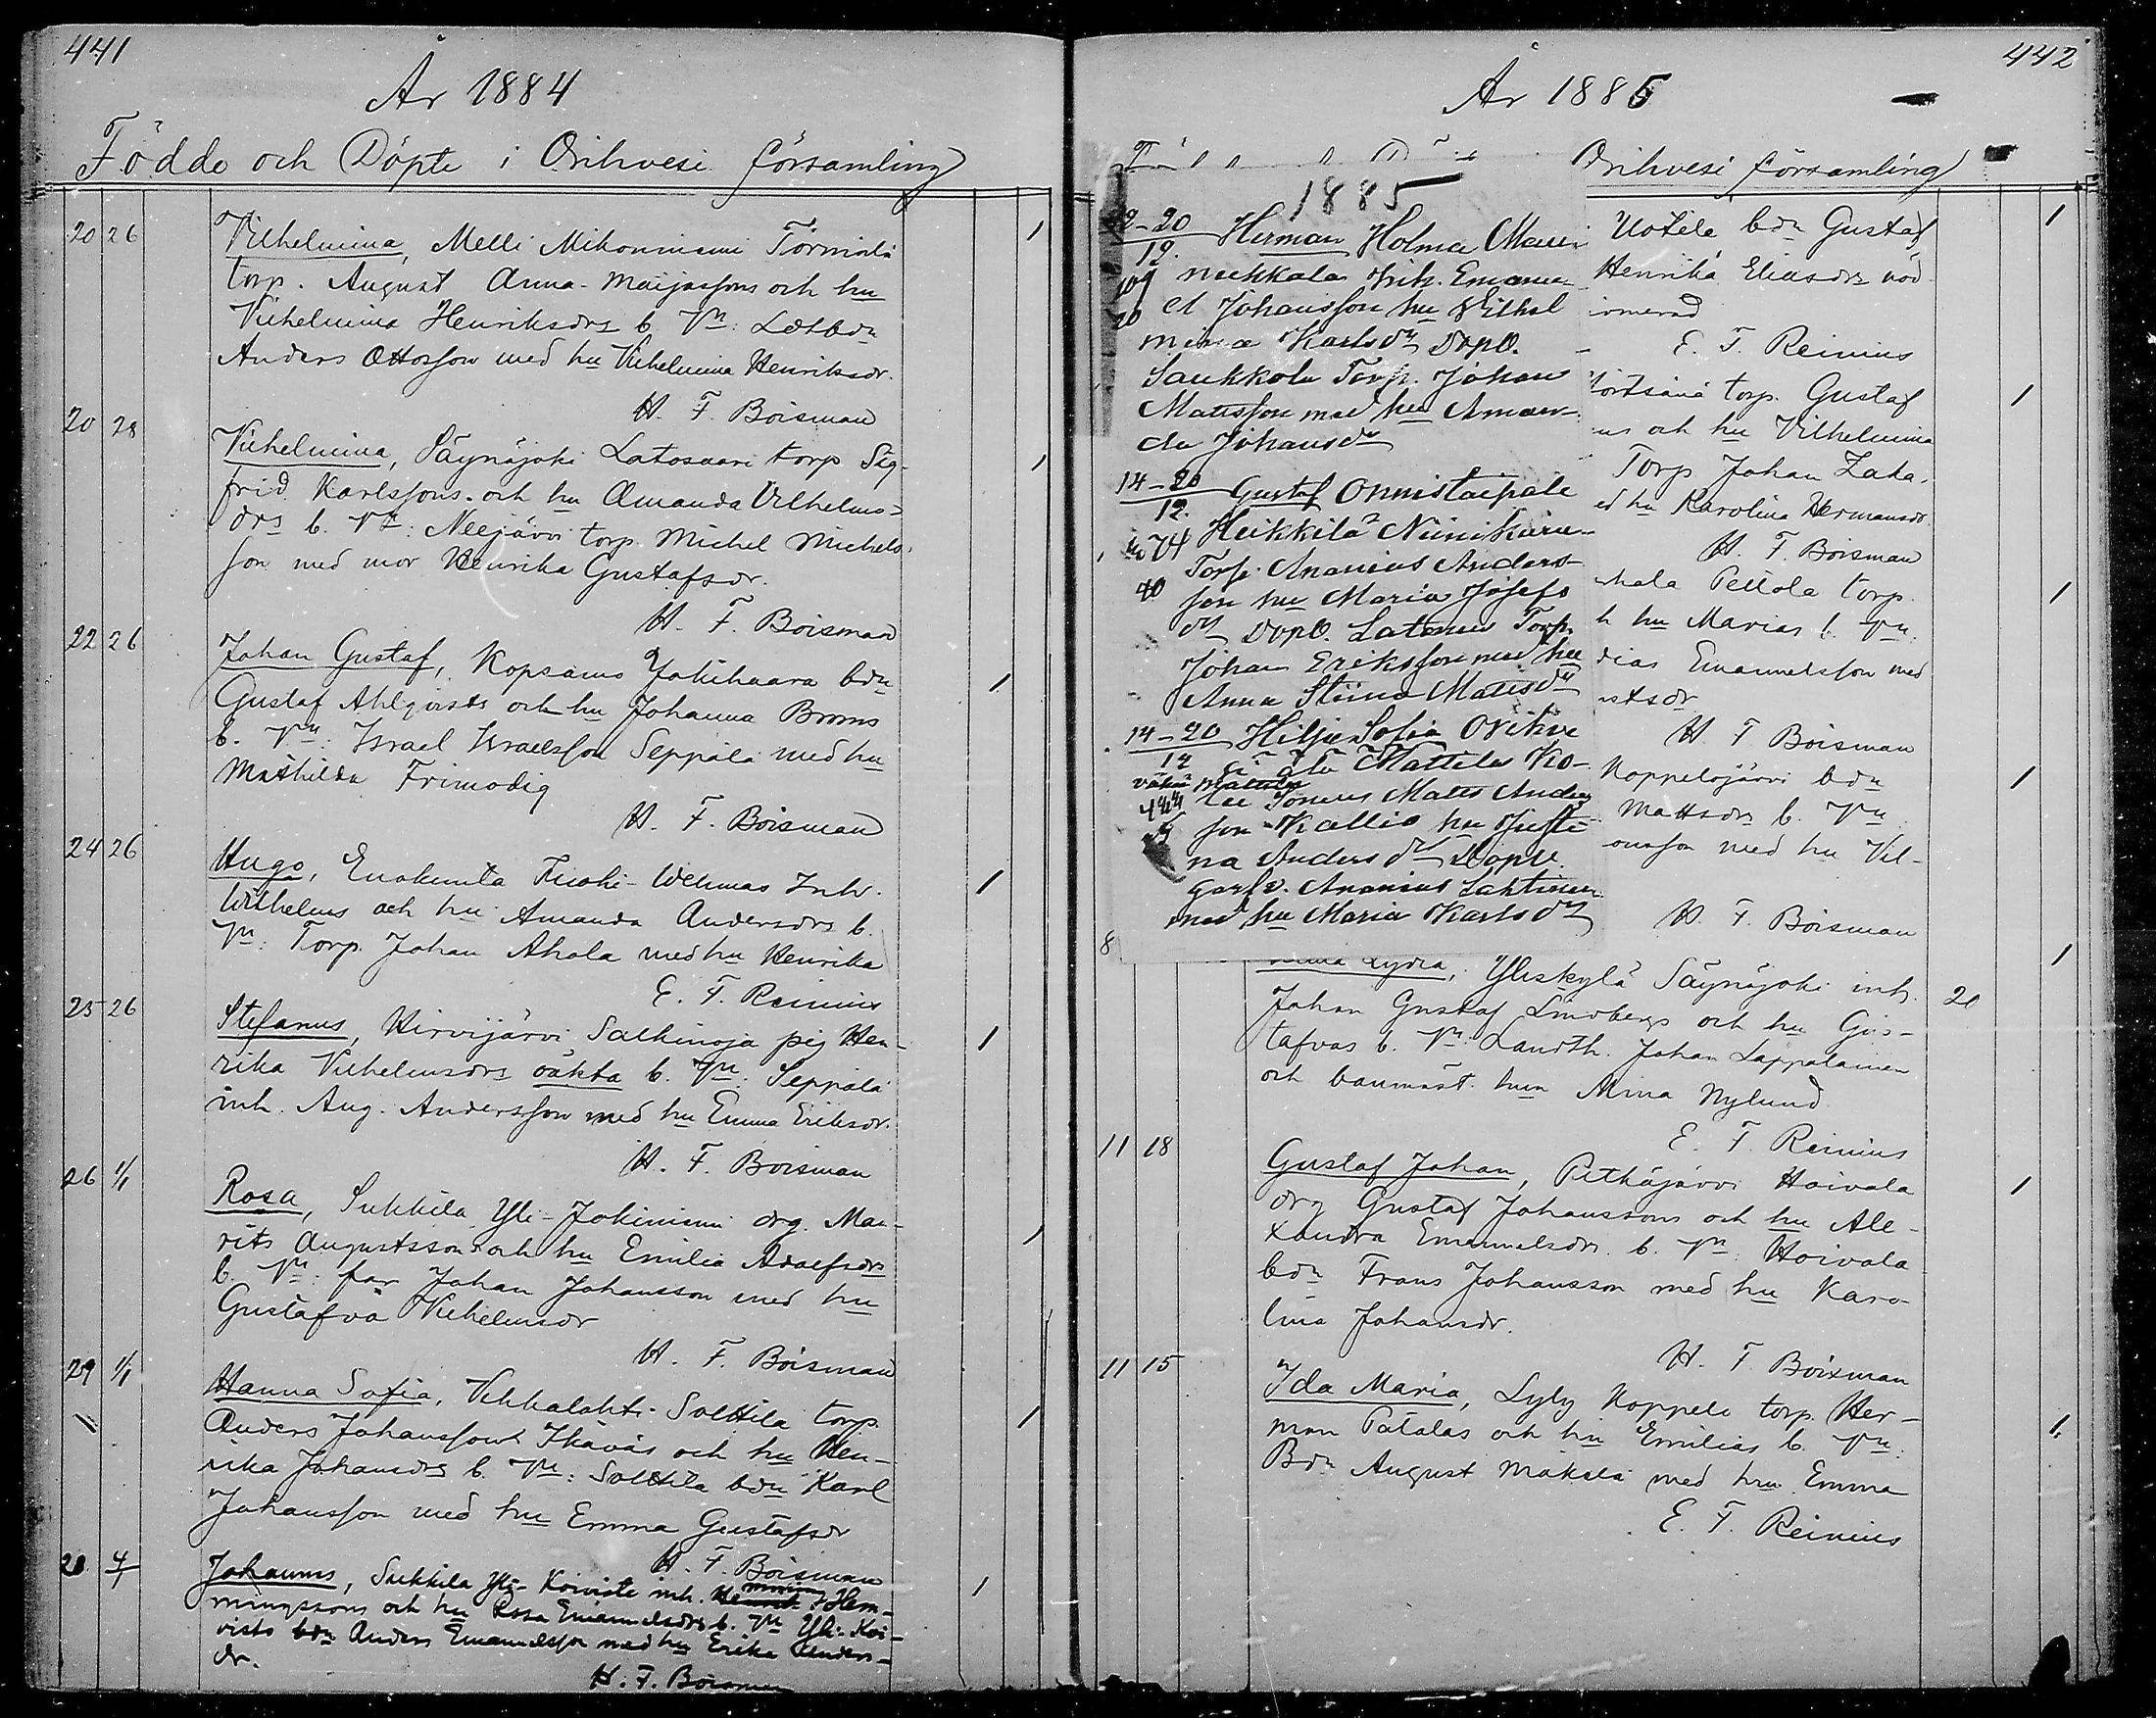 441
År 1884
Födde och Döpte i Orihvesi församling
20 26 Vilhelmina, Melli Mikonniemi Törmälä 1
torp. August Anna-Maijassons och hu
Vilhelmina Henriksdrs b. Vn:
Anders Ottosson med hu Vilhelmina Henriksdr.
H. F. Boisman
20 28 Vilhelmina, Säynäjoki Latosaari torp Sig- 1
frid Karlssons och hu Amanda Vilhelms-
drs b. Vn: Neejärvi torp. Michel Michels-
son med mor Henrika Gustafsdr.
H. F. Boisman
22 26 Johan Gustaf, Kopsamo Jokihaara bdn 1
Gustaf Ahlqvists och hu Johanna Broms
b. Vn: Israel Israelsson Seppälä med hu
Mathilda Frimodig
H. F. Boisman
24 26 Hugo, Enokunta Inh. 1
Wilhelms och hu Amanda Andersdrs b.
Vn: Torp. Johan Ahola med hu Henrika
E. F. Reinius
25 26 Stefanus, Hirvijärvi Salkinoja pig Hen- 1
rika Vilhelmsdrs oäkta b. Vn: Seppälä
inh. Aug. Andersson med hu Emma Eriksdr.
H. F. Boisman
26 1/1 Rosa, Sukkila Yli-Jokiniemi drg. Mau- 1
rits Augustsson och hu Emilia Adolfsdrs
b. Vn: far Johan Johansson med hu
Gustafva Vilhelmsdr
H. F. Boisman
29 1/1 Hanna Sofia, Vihkalahti Solttila torp 1
Anders Johanssons och hu Hen-
rika Johansdrs b. Vn: Solttila bdn Karl
Johansson med hu Emma Gustafsdr
H. F. Boisman
28 4/1 Johannes, Sukkila Yli-Koivisto inh. Hem- 1
mingssons och hu Rosa Emanuelsdrs b. Vn Yli-Koi-
visto bdn Anders Emanuelsson med hu Erika Anders-
dr.
H. F. Boisman
442
År 1885
Orihvesi församling
1885
12-20 Herman Holma Mauri
12.
neekkala Emanu-
el Johansson hu Vilhel
20
mina Karlsdr Döpt.
Saukkola Torp. Johan
Mattsson med hu Aman-
da Johansdr
14-20 Gustaf Onnistaipale
12.
Heikkilä Niinikuru
Torp. Ananias Anders-
40 son hu Maria Josefs
dr Döpt. Torp.
Johan Eriksson med hu
Anna Stiina Matts dr
14-20 Hilja Sofia Orihve
12
Mattila Ko-
Matts Anders
son Kallio hu Justi
na Anders dr Döpte.
Ananias Lahtinen
med hu Maria Karls dr
Uotila bdn Gustaf 1
Henrika Eliasdrs nöd
E. F. Reinius
torp. Gustaf 1
och hu Vilhelmina
Torp Johan Zaka-
hu Karolina Hermansdr.
H. F. Boisman
Peltola torp. 1
hu Marias b. Vn.
Emanuelsson med
H. F. Boisman
Koppelojärvi bdn 1
Mattsdrs b. Vn
med hu Vil-
H. F. Boisman
8 Lydia, Yliskylä Säynäjoki inh. 20 1
Johan Gustaf Lindbergs och hu Gus-
tafvas b. Vn: Landth. Johan Lappalainen
och banmäst. hun Mina Nylund
E. F. Reinius
11 18 Gustaf Johan, Pitkäjärvi Hoivala 1
drg Gustaf Johanssons och hu Ale-
xandra Emanuelsdrs b. Vn: Hoivala
bdn Frans Johansson med hu Karo-
lina Johansdr.
H. F. Boisman
11 15 Ida Maria, Lyly Koppeli torp. Her- 1
man Patalas och hu Emilias b. Vn:
Bdn August Mäkelä med hu Emma
E. F. Reinius